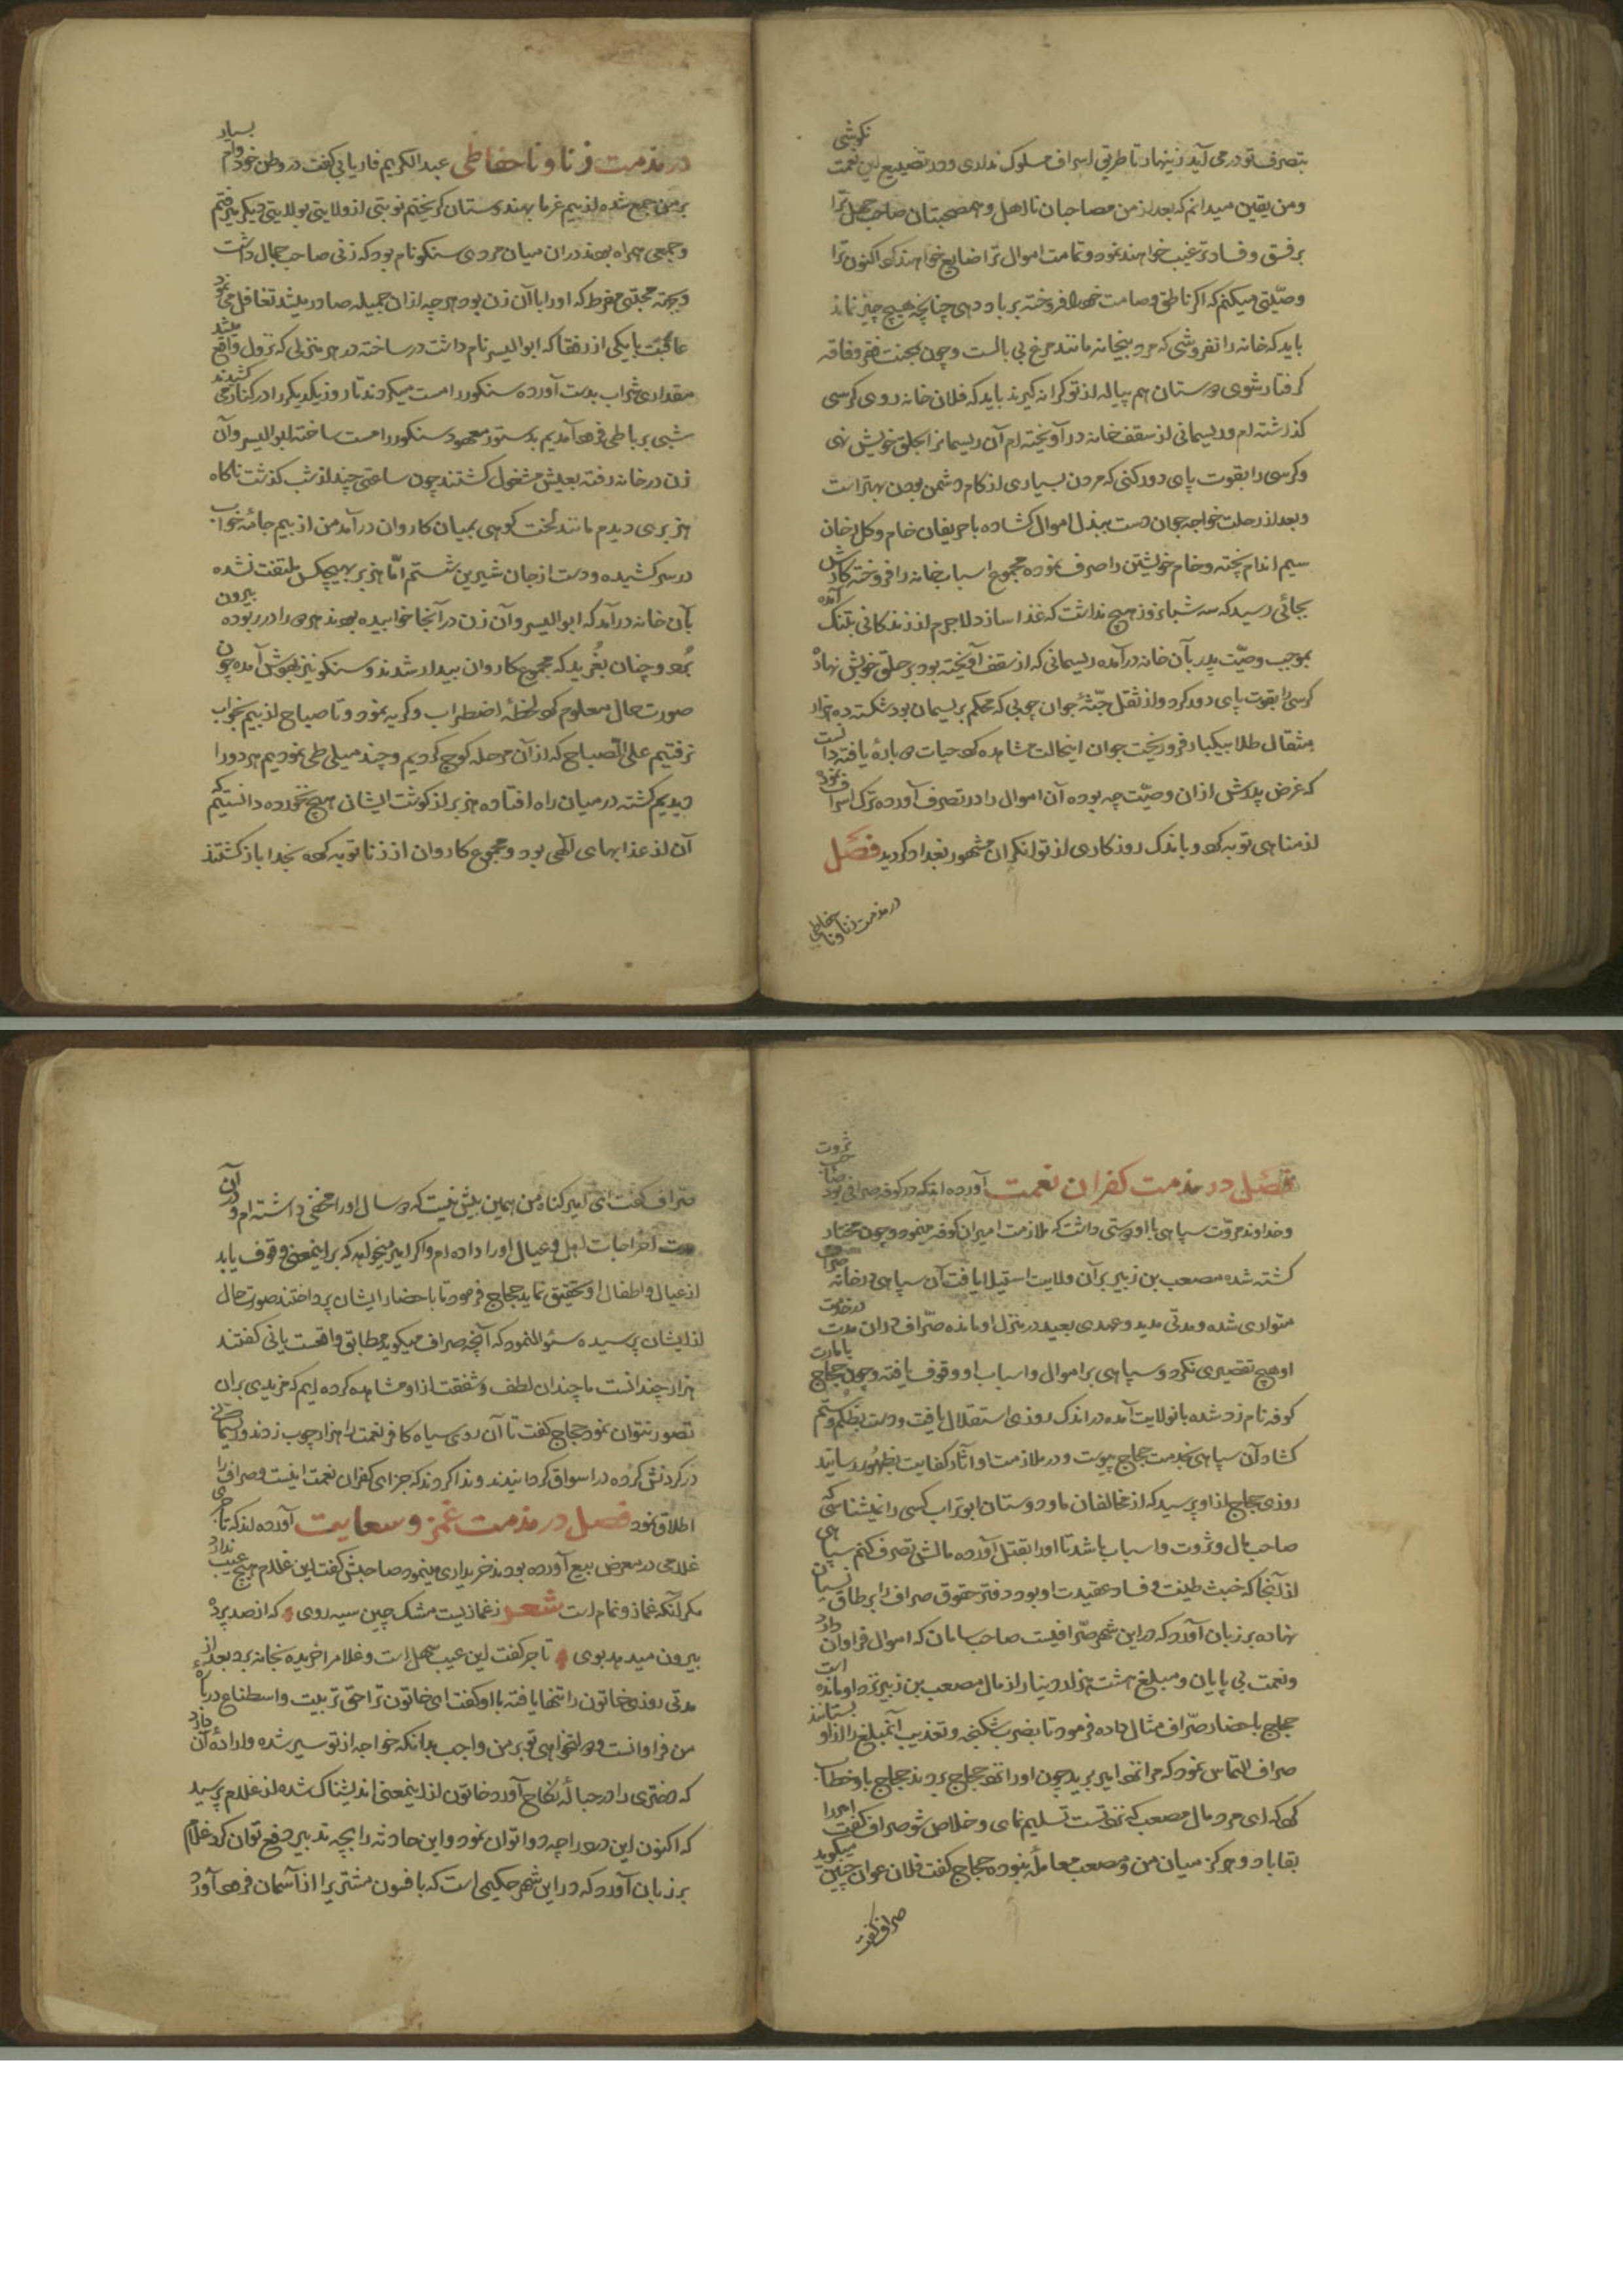 بتصرف تو درمی آید زینهار تا طریق اسراف مسلوک نداری و در تضییع این نعمت نکوشی
و من یقین میدانم که بعد از من مصاحبان نااهل و همصحبتان صاحب جهل ترا
بر فسق و فساد ترغیب خواهند نمود و تمامت اموال ترا ضایع خواهند کرد اکنون ترا
وصیّتی میکنم که اگر ناطق و صامت خود را فروخته بر باد دهی چنانچه هیچ چیز نماند
باید که خانه را نفروشی که مرد بیخانه مانند مرغ بی بالست و چون بمحنت فقر و فاقه
گرفتار شوی و دستان هم پیاله از تو کرانه گیرند باید که فلان خانه روی کرسی
گذاشته ام و ریسمانی از سقف خانه در آویخته ام آن ریسمانرا بحلق خویش نهی
و کرسی را بقوت پای دور کنی که مردن بسیاری از کام دشمن بودن بهتر است
و بعد از رحلت خواجه جوان دست ببذل اموال گشاده با حریفان خام و گل رخان
سیم اندام پخته و خام خویشتن را صرف نموده مجموع اسباب خانه را فروخته کارش
بجائی رسید که سه شبانروز هیچ نداشت که غذا سازد لاجرم از زندکانی بتنک آمده
بموجب وصیّت پدر بآن خانه درآمده ریسمانی که از سقف آویخته بود بر حلق خویش نهاد
کرسی را بقوت پای دور کرد و از ثقل جثّهٔ جوان چوبی که محکم بریسمان بود شکسته ده هزار
مثقال طلا بیکبار فرو ریخت جوان اینحالت مشاهده کرده حیات دوباره یافته دانست
که غرض پدرش ازان وصیّت چه بوده آن اموال را در تصرف آورده ترک اسراف نموده
از مناهی توبه کرد و باندک روزکاری از توانکران مشهور بغداد کردید فصل
در مذمت زنا و ناحفاظی
در مذمت زنا و ناحفاظی عبدالکریم فاریابی گفت در وطن خود وام بسیار
بر من جمع شده از بیم غرما بهندوستان کریختم نوبتی از ولایتی بولایتی دیکر میرفتم
و جمعی همراه بودند دران میان مردی سنکو نام بود که زنی صاحب جمال داشت
و بجهة محبّتی مفرط که او را با آن زن بود هر چه ازان جمیله صادر میشد تغافل می نمود
عاقبت با یکی از رفقا که ابوالیسر نام داشت در ساخته در هر منزلی که نزول واقع میشد
مقداری شراب بدست آورده سنکو را مست میکردند تا روز یکدیکر را در کنار می کشیدند
شبی برباطی فرود آمدیم بدستور معهود سنکو را مست ساخته ابوالیسر و آن
زن در خانه رفته بعیش مشغول کشتند چون ساعتی چند از شب کذشت ناکاه
هزبری دیدم مانند لخت کوهی بمیان کاروان درآمد من از بیم جامهٔ خواب
در سر کشیده و دست از جان شیرین شستم امّا هزبر بهیچکس ملتفت نشده
بآن خانه درآمد که ابوالیسر و آن زن در آنجا خوابیده بودند هر دو را در ربوده بیرون
برد و چنان بغُرید که مجموع کاروان بیدار شدند و سنکو نیز بهوش آمده چون
صورت حال معلوم کرد لحظهٔ اضطراب و کریه نمود و تا صباح از بیم بخواب
نرفتیم علی الصباح که از آن مرحله کوچ کردیم و چند میلی طی نمودیم هر دو را
دیدیم کشته در میان راه افتاده هزبر از کوشت ایشان هیچ نخورده دانستیم که
آن از عذابهای الٓهی بود و مجموع کاروان از زنا توبه کرده بخدا باز کشتند
فصل در مذمت کفران نعمت آورده اند که در کوفه صرافی بود صاحب ثروت
و خداوند مروّت سپاهی با او دوستی داشت که ملازمت امیران کوفه مینمود و چون مختار
کشته شده مصعب بن زبیر بر آن ولایت استیلا یافت آن سپاهی در خانه صراف
متواری شده و مدتی مدید و عهدی بعید در منزل او مانده صرّاف دران مدت در خدمت
او هیچ تقصیری نکرد و سپاهی بر اموال و اسباب او وقوف یافته و چون حجاج بامارت
کوفه نام زد شده بانولایت آمده در اندک روزی استقلال یافت و دست بظلم و ستم
کشاد آن سپاهی بخدمت حجاج پیوست و در ملازمت او آثار کفایت بظهور رسانید
روزی حجاج از او پرسید که از مخالفان ما و دوستان ابوتراب کسی را نمیشناسی که
صاحب مال و ثروت و اسباب باشد تا او را بقتل آورده مالش تصرف کنم سپاهی
از آنجا که خبث طینت و فساد عقیدت او بود دفتر حقوق صراف را بر طاق نسیان
نهاده بر زبان آورد که در این شهر صرّافیست صاحب سامان که اموال فراوان دارد
و نعمت بی پایان و مبلغ هشت هزار دینار از مال مصعب بن زبیر نزد او مانده است
حجاج باحضار صرّاف مثال داده فرمود تا بضرب شکنجه و تعذیب آنمبلغ را از او بستانند
صراف التماس نمود که مرا نزد امیر برید چون او را نزد حجاج بردند حجاج باو خطاب
کرد که ای مرد مال مصعب که نزد تست تسلیم نمای و خلاص شو صراف گفت امیر را
بقا باد هرگز میان من و مصعب معاملهٔ نبوده حجاج گفت فلان عوان چنین میگوید
صراف گفت
صرّاف گفت ای امیر کناه من همین بیش نیست که دو سال او را مخفی داشته ام و در آن
مدت اخراجات اهل و عیال او را داده ام و اگر امیر میخواهد که بر اینمعنی وقوف یابد
از عیال و اطفال او تحقیق نماید حجاج فرمود تا باحضار ایشان پرداختند صورت حال
از ایشان پرسیده سئوال نمود که آنچه صراف میگوید مطابق واقعست یانی گفتند
هزار چندانست ما چندان لطف و شفقت از او مشاهده کرده ایم که مزیدی بران
تصور نتوان نمود حجاج گفت تا آن روی سیاه کافر نعمت را هزار چوب زدند و ریسمانی
در کردنش کرده در اسواق کردانیدند و ندا کردند که جزای کفران نعمت اینست و صراف را
اطلاق نمود فصل در مذمت غمز و سعایت آورده اند که تاجری
غلامی در معرض بیع آورده بودند خریداری مینمود صاحبش گفت این غلام هیچ عیب ندارد
مکر آنکه غماز و نمام است شعر ز غمازیست مشک چین سیه روی که از صد پرده
بیرون میدهد بوی تاجر گفت این عیب سهل است و غلام را خریده بخانه برد بعد از
مدتی روزی خاتون را تنها یافته با او گفت ای خاتون ترا حق تربیت و اصطناع دربارهٔ
من فراوانست و دولتخواهی تو بر من واجب بدانکه خواجه از تو سیر شده و ارادهٔ آن دارد
که دختری را در حباله نکاح آورد خاتون از اینمعنی اندیشناک شده از غلام پرسید
که اکنون این درد را چه دوا توان نمود و این حادثه را بچه تدبیر دفع توان کرد غلام
بر زبان آورد که در این شهر حکیمی است که بافسون مشتری را از آسمان فرود آورد